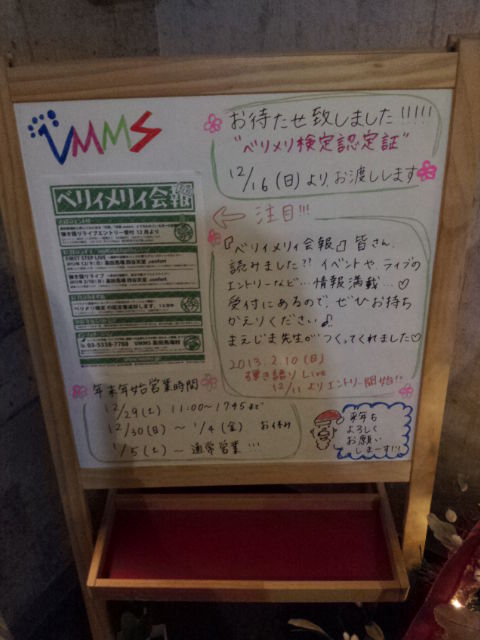 VMMS
お待たせ致しました!!!!!
"ベリメリ検定認定証"
12/16(日)より、お渡しします
ベリィメリィ会報
弾き語りライブエントリー受付 12月より
FIRST STEP LIVE
弾き語りライブ
03-5338-7788 VMMS 高田馬場校
注目!!!
『ベリィメリィ会報』皆さん、
読みました?? イベントや ライブの
エントリーなど… 情報満載…♡
受付にあるので、ぜひお持ち
かえりください♪
まえじま先生が つくってくれました♡
2013.2.10(日)
弾き語り Live
12/11 よりエントリー開始!!
年末年始営業時間
12/29(土) 11:00〜17:45まで
12/30(日)〜 1/4(金) お休み
1/5(土)〜通常営業…
来年も
よろしく
お願い
しまーす!!